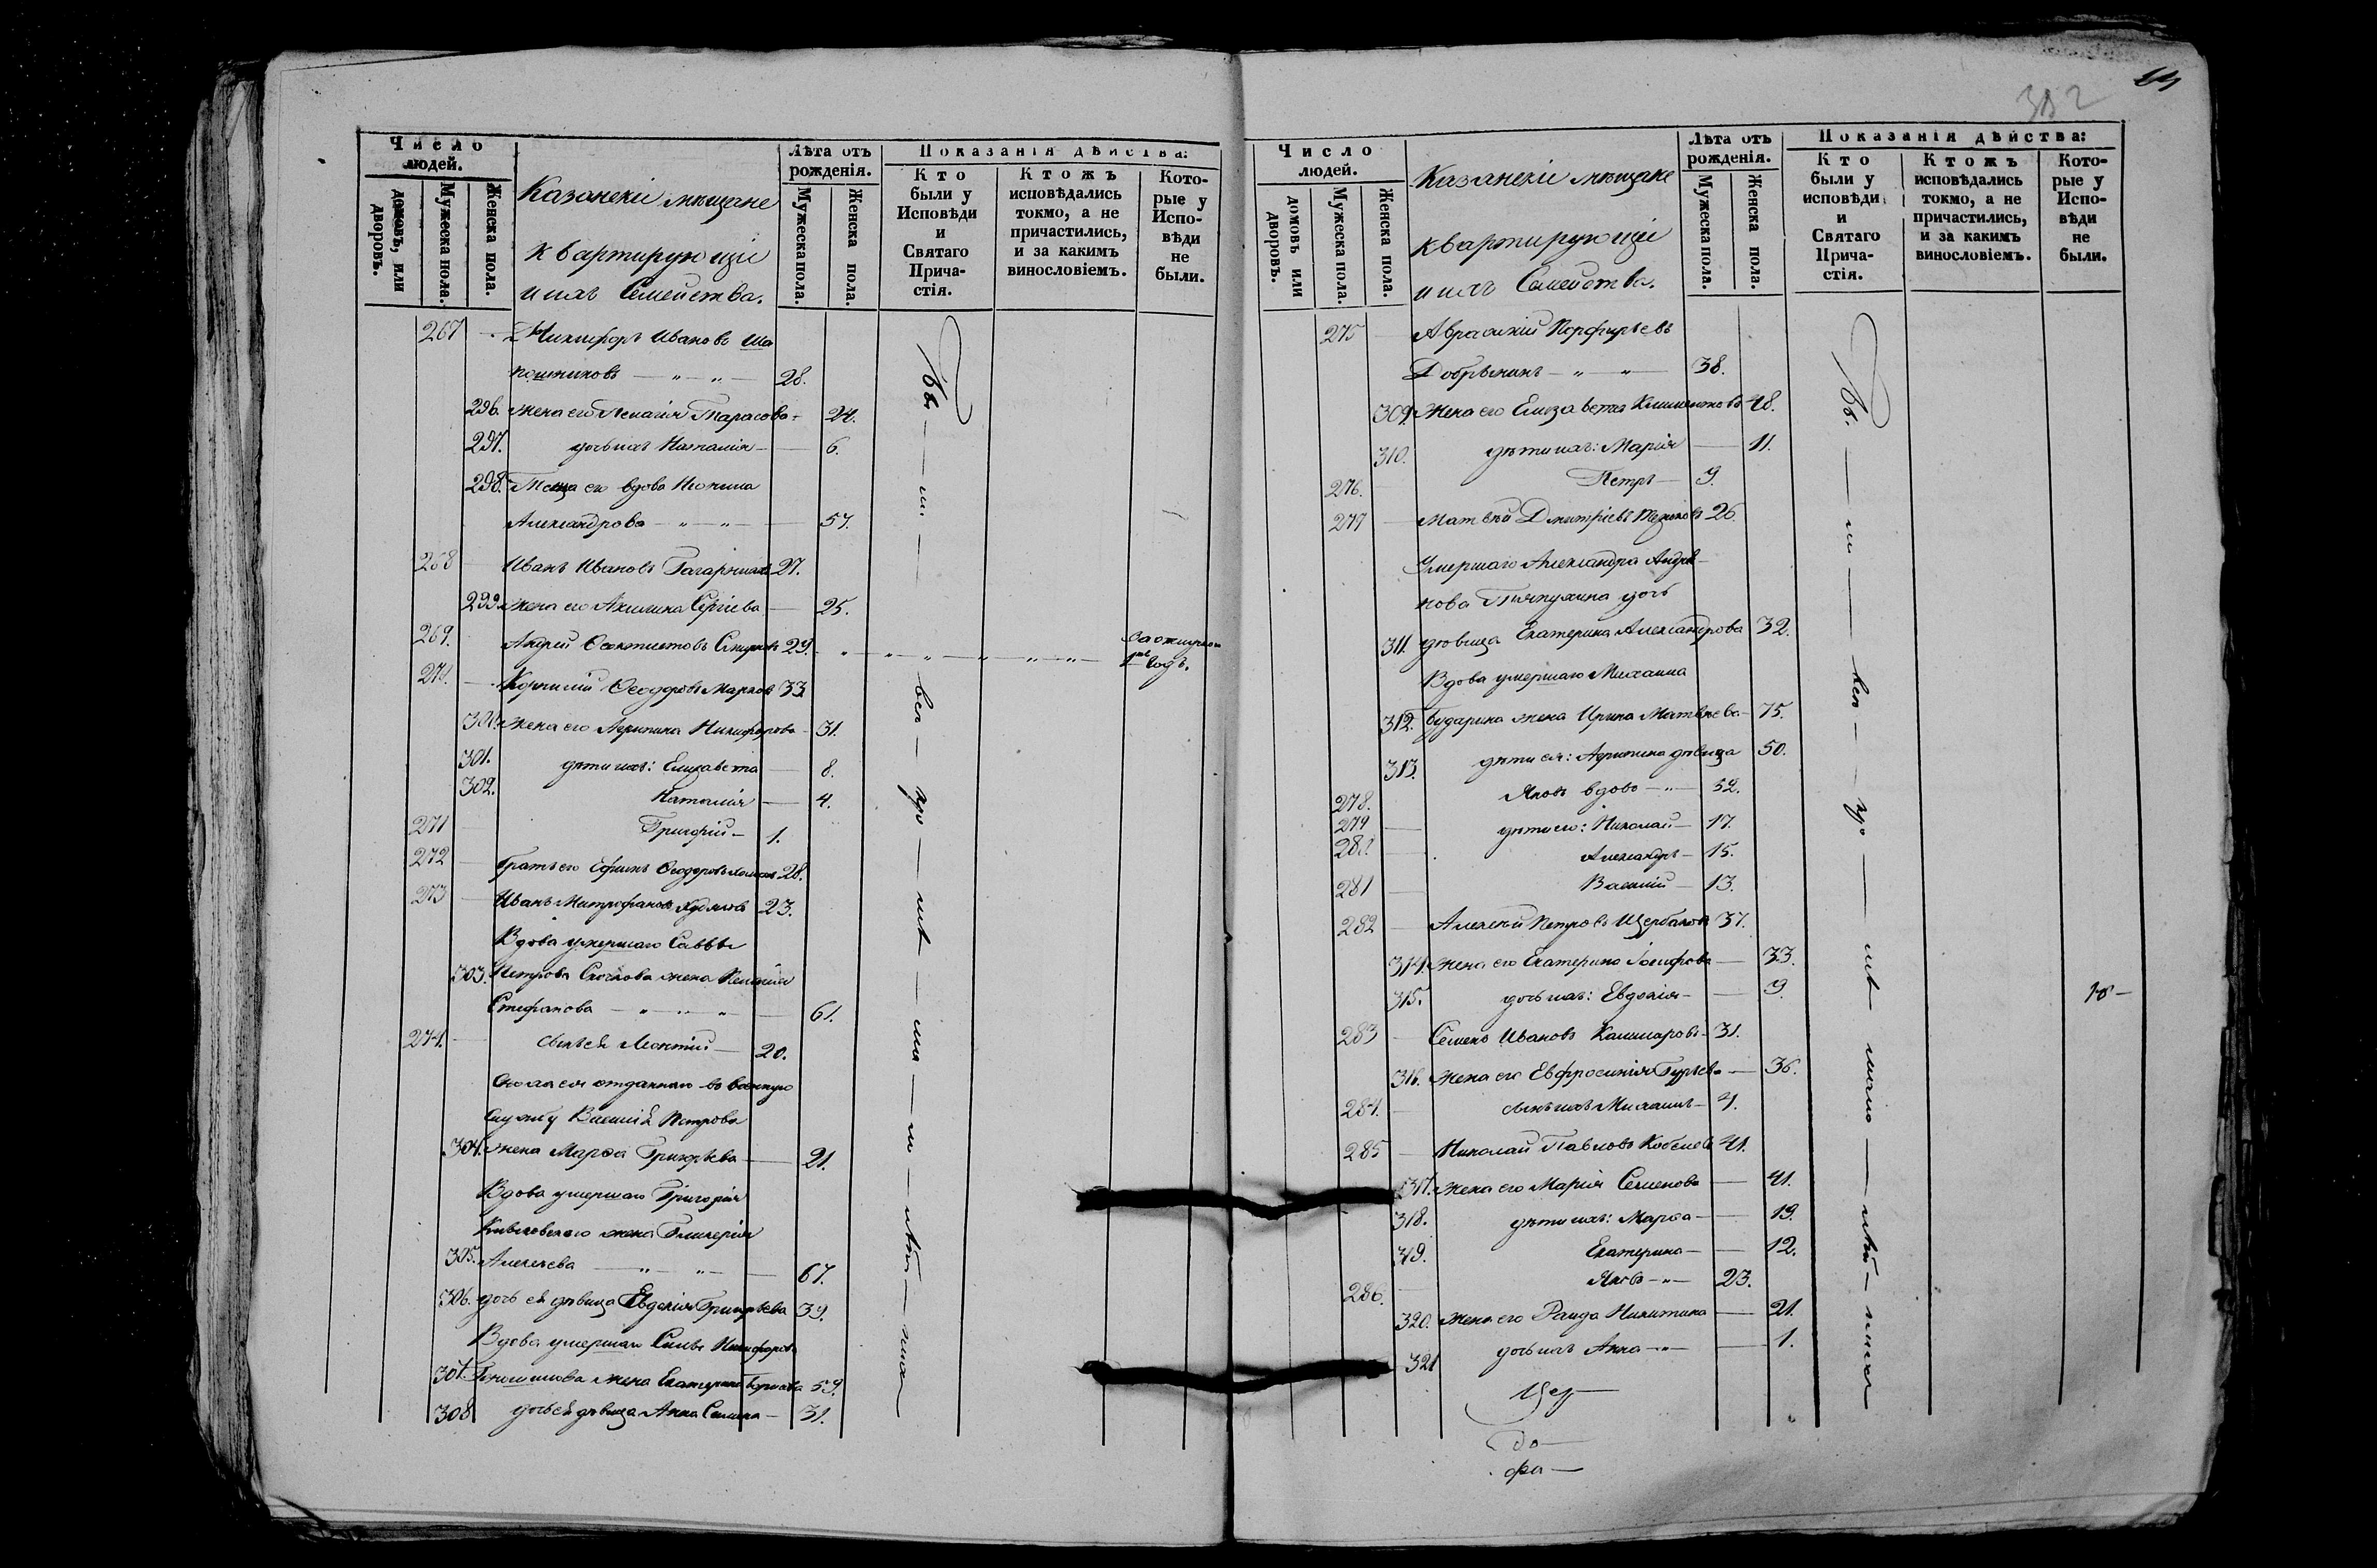 Число людей.
домовъ, или дворовъ.
Мужеска пола.
Женска пола.
Казанскіе мѣщане
квартирующіе
и ихъ Семейства.
Лѣта отъ рожденія.
Мужеска пола.
Женска пола.
Показанія дѣйства:
Кто были у Исповѣди и Святаго Причастія.
Ктожъ исповѣдались токмо, а не причастились, и за какимъ винословіемъ.
Которые у Исповѣди не были.
267 Никифоръ Ивановъ Ша
пошниковъ — „ — „ — 28.
296. жена его Пелагія Тарасова 24.
297. дочь ихъ Наталія — 6.
298. Теща его вдова Неонила
Александрова — „ — „ — 57.
268 Иванъ Ивановъ 27.
299. жена его Акилина Сергіева — 25.
269. Андрей Ѳеоктистовъ 29.
годъ.
270. Корнилій Ѳеодоровъ Марковъ 33
300. жена его Агрипина Никифорова — 31.
301. дѣти ихъ: Елизавета — 8.
302. Наталія — 4.
271 Григорій — 1.
272 Братъ его Ефимъ Ѳеодоровъ 28.
273 Иванъ Митрофановъ Худяковъ 23.
Вдова умершаго Саввы
303. Петрова жена
Стефанова — „ — „ — „ — 61.
274. сынъ ея Леонтій — 20.
отданнаго въ военную
службу Василія Петрова
304. жена Марѳа Григорьева — 21.
Вдова умершаго Григорія
жена Гликерія
305. Алексѣева — „ — „ — 67.
306. дочь ея дѣвица Евдокія Григорьева 39.
Вдова умершаго Силы Никифорова
307. жена Екатерина 59.
308 дочь ея дѣвица Анна Силина — 31.
64
382
Число людей.
домовъ или дворовъ.
Мужеска пола.
Женска пола.
Казанскіе мѣщане
квартирующіе
и ихъ Семейства.
Лѣта отъ рожденія.
Мужеска пола.
Женска пола.
Показанія дѣйства:
Кто были у исповѣди и Святаго Причастія.
Ктожъ исповѣдались токмо, а не причастились, и за какимъ винословіемъ.
Которые у Исповѣди не были.
275 Аврамій Порфирьевъ
Добрынинъ — „ — „ — 38.
309. жена его Елизавета Климентова 48.
310. дѣти ихъ: Марія — 11.
276. Петръ — 9.
277 Матвѣй Дмитріевъ 26.
Умершаго Александра
нова дочь
311. дѣвица Екатерина Александрова 32.
Вдова умершаго Михаила
312. Бударина жена Ирина Матвѣева — 75.
313. дѣти ея: Агрипина дѣвица 50.
278. Яковъ вдовъ — „ — 52.
279 дѣти его: Николай — 17.
280. Александръ — 15.
281 Василій — 13.
282 Алексѣй Петровъ Щербаковъ 37.
314. жена его Екатерина Іосифова — 33.
315. дочь ихъ: Евдокія — 9.
283 Семенъ Ивановъ 31.
316. жена его Евфросинія Гурьева — 36.
284. сынъ ихъ Михаилъ — 4.
285 Николай Павловъ Кобелевъ 41.
317. жена его Марія Семенова — 41.
318. дѣти ихъ: Марѳа — 19.
319. Екатерина — 12.
286. Яковъ — „ — 23.
320. жена его Раида Никитина — 21.
321 дочь ихъ Анна — „ — 1.